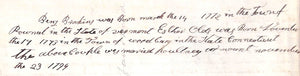 Benj Jenkins was Born march the 14 1772 in the Town of
Pownal in the State of vermont Esther Olds was Born November
the 14 1777 in the Town of woodbury in the State Connecticut
the above Couple was married November
the 23 1794